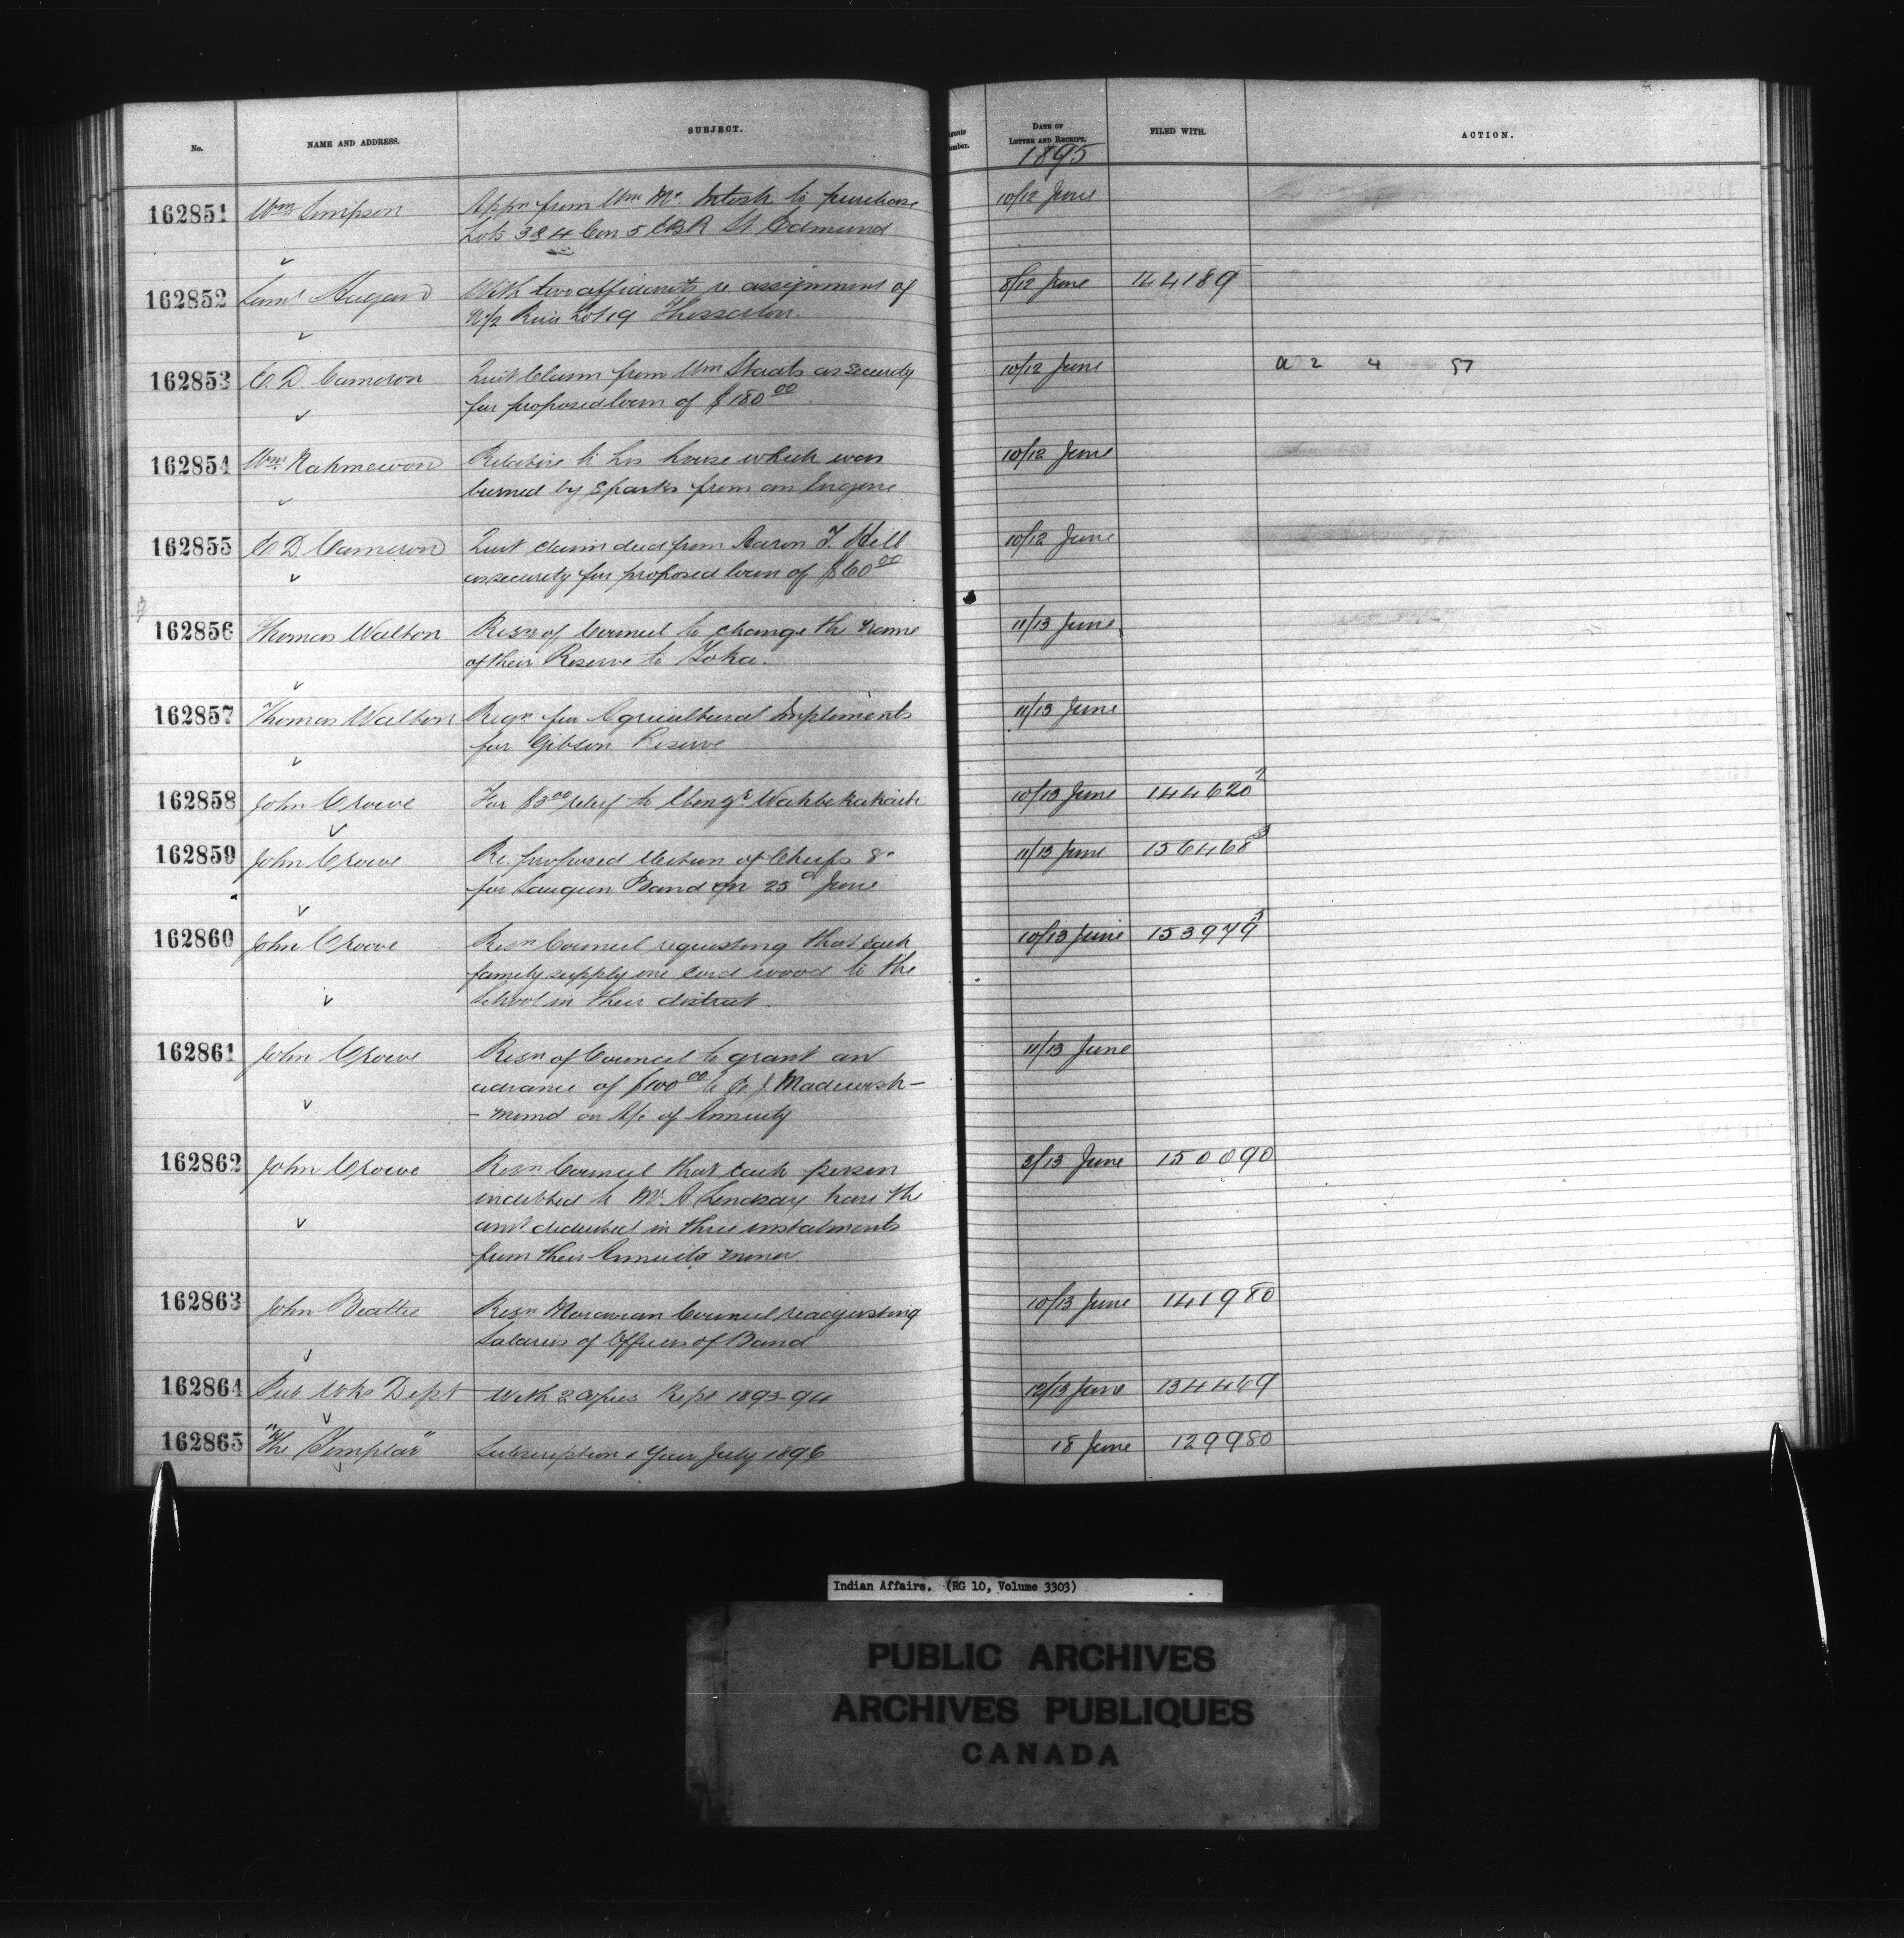 No. NAME AND ADDRESS. SUBJECT. Agents Number. DATE OF LETTER AND RECEIPT. FILED WITH. ACTION.
1895
162851 Wm Simpson Appn from Wm Mc Intosh to purchase 10/12 June
Lots 3 & 4 Con 5 EBR St Edmund
162852 Saml Hagan With two affidavits re assignment of 8/12 June 144189
N 1/2 River Lot 19 Thessalon.
162853 C. D. Cameron Quit Claim from Wm Staats as security 10/12 June a 2 4 57
for proposed loan of $180 00
162854 Wm Kahmewon Relative to his house which was 10/12 June
burned by Sparks from an Engine
162855 C. D. Cameron Quit claim deed from Aaron T. Hill 10/12 June
as security for proposed loan of $60 00
162856 Thomas Walton Resn of Council to change the name 11/13 June
of their Reserve to
162857 Thomas Walton Reqn for Agricultural Impliments 11/13 June
for Gibson Reserve
162858 John Crowe For $3 00 relief to 10/13 June 144620 2
162859 John Crowe Re. proposed election of Chiefs &c 11/13 June 156468 3
for Saugeen Band on 25 June
162860 John Crowe Resn Council requesting that each 10/13 June 153979 3
family supply one cord wood to the
School in their district.
162861 John Crowe Resn of Council to grant an 11/13 June
advance of $100 00 to J. Madwash-
- mind on A/c of Annuity
162862 John Crowe Resn Council that each person 3/13 June 150090
indebted to Mr. A Lindsay have the
amt. deducted in three instalments
from their Annuity money.
162863 John Beattie Resn Moravian Council readjusting 10/13 June 141980
Salaries of Officers of Band
162864 Pub Wks Dept With 2 Copies Rept 1893-94 12/13 June 134469
162865 "The Templar" Subscription 1 Year July 1896 18 June 129980
Indian Affairs. (RG 10, Volume 3303)
PUBLIC ARCHIVES
ARCHIVES PUBLIQUES
CANADA